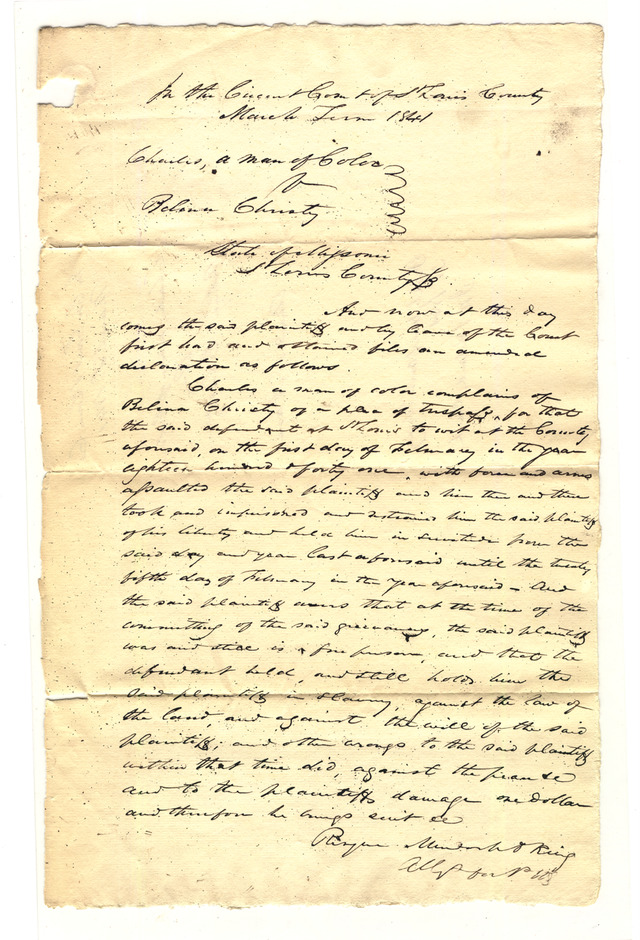 In the Circuit Court of St Louis County
March Term 1841
Charles, a man of Color
v
Belina Christy
State of Missouri
St Louis County ss.
And now at this day
comes the said plaintiff and by leave of the Court
first had and obtained files an amended
declaration as follows.
Charles a man of color complains of
Belina Christy of a plea of trespass, for that
the said defendant at St Louis to wit at the County
aforesaid, on the first day of February in the year
eighteen hundred & forty one, with force and arms
assaulted the said plaintiff and him then and there
took and imprisoned and restrained him the said plaintiff
of his liberty and held him in servitude from the
said day and year last aforesaid until the twenty
fifth day of February in the year aforesaid - And
the said plaintiff avers that at the time of the
committing of the said grievances, the said plaintiff
was and still is a free person, and that the
defendant held, and still holds him the
said plaintiff in slavery, against the law of
the land, and against the will of the said
plaintiff; and other wrongs to the said plaintiff
within that time did, against the peace &c
and to the plaintiffs damage one dollar
and therefore he brings suit &c
Murdoch & King
Attys for Plff